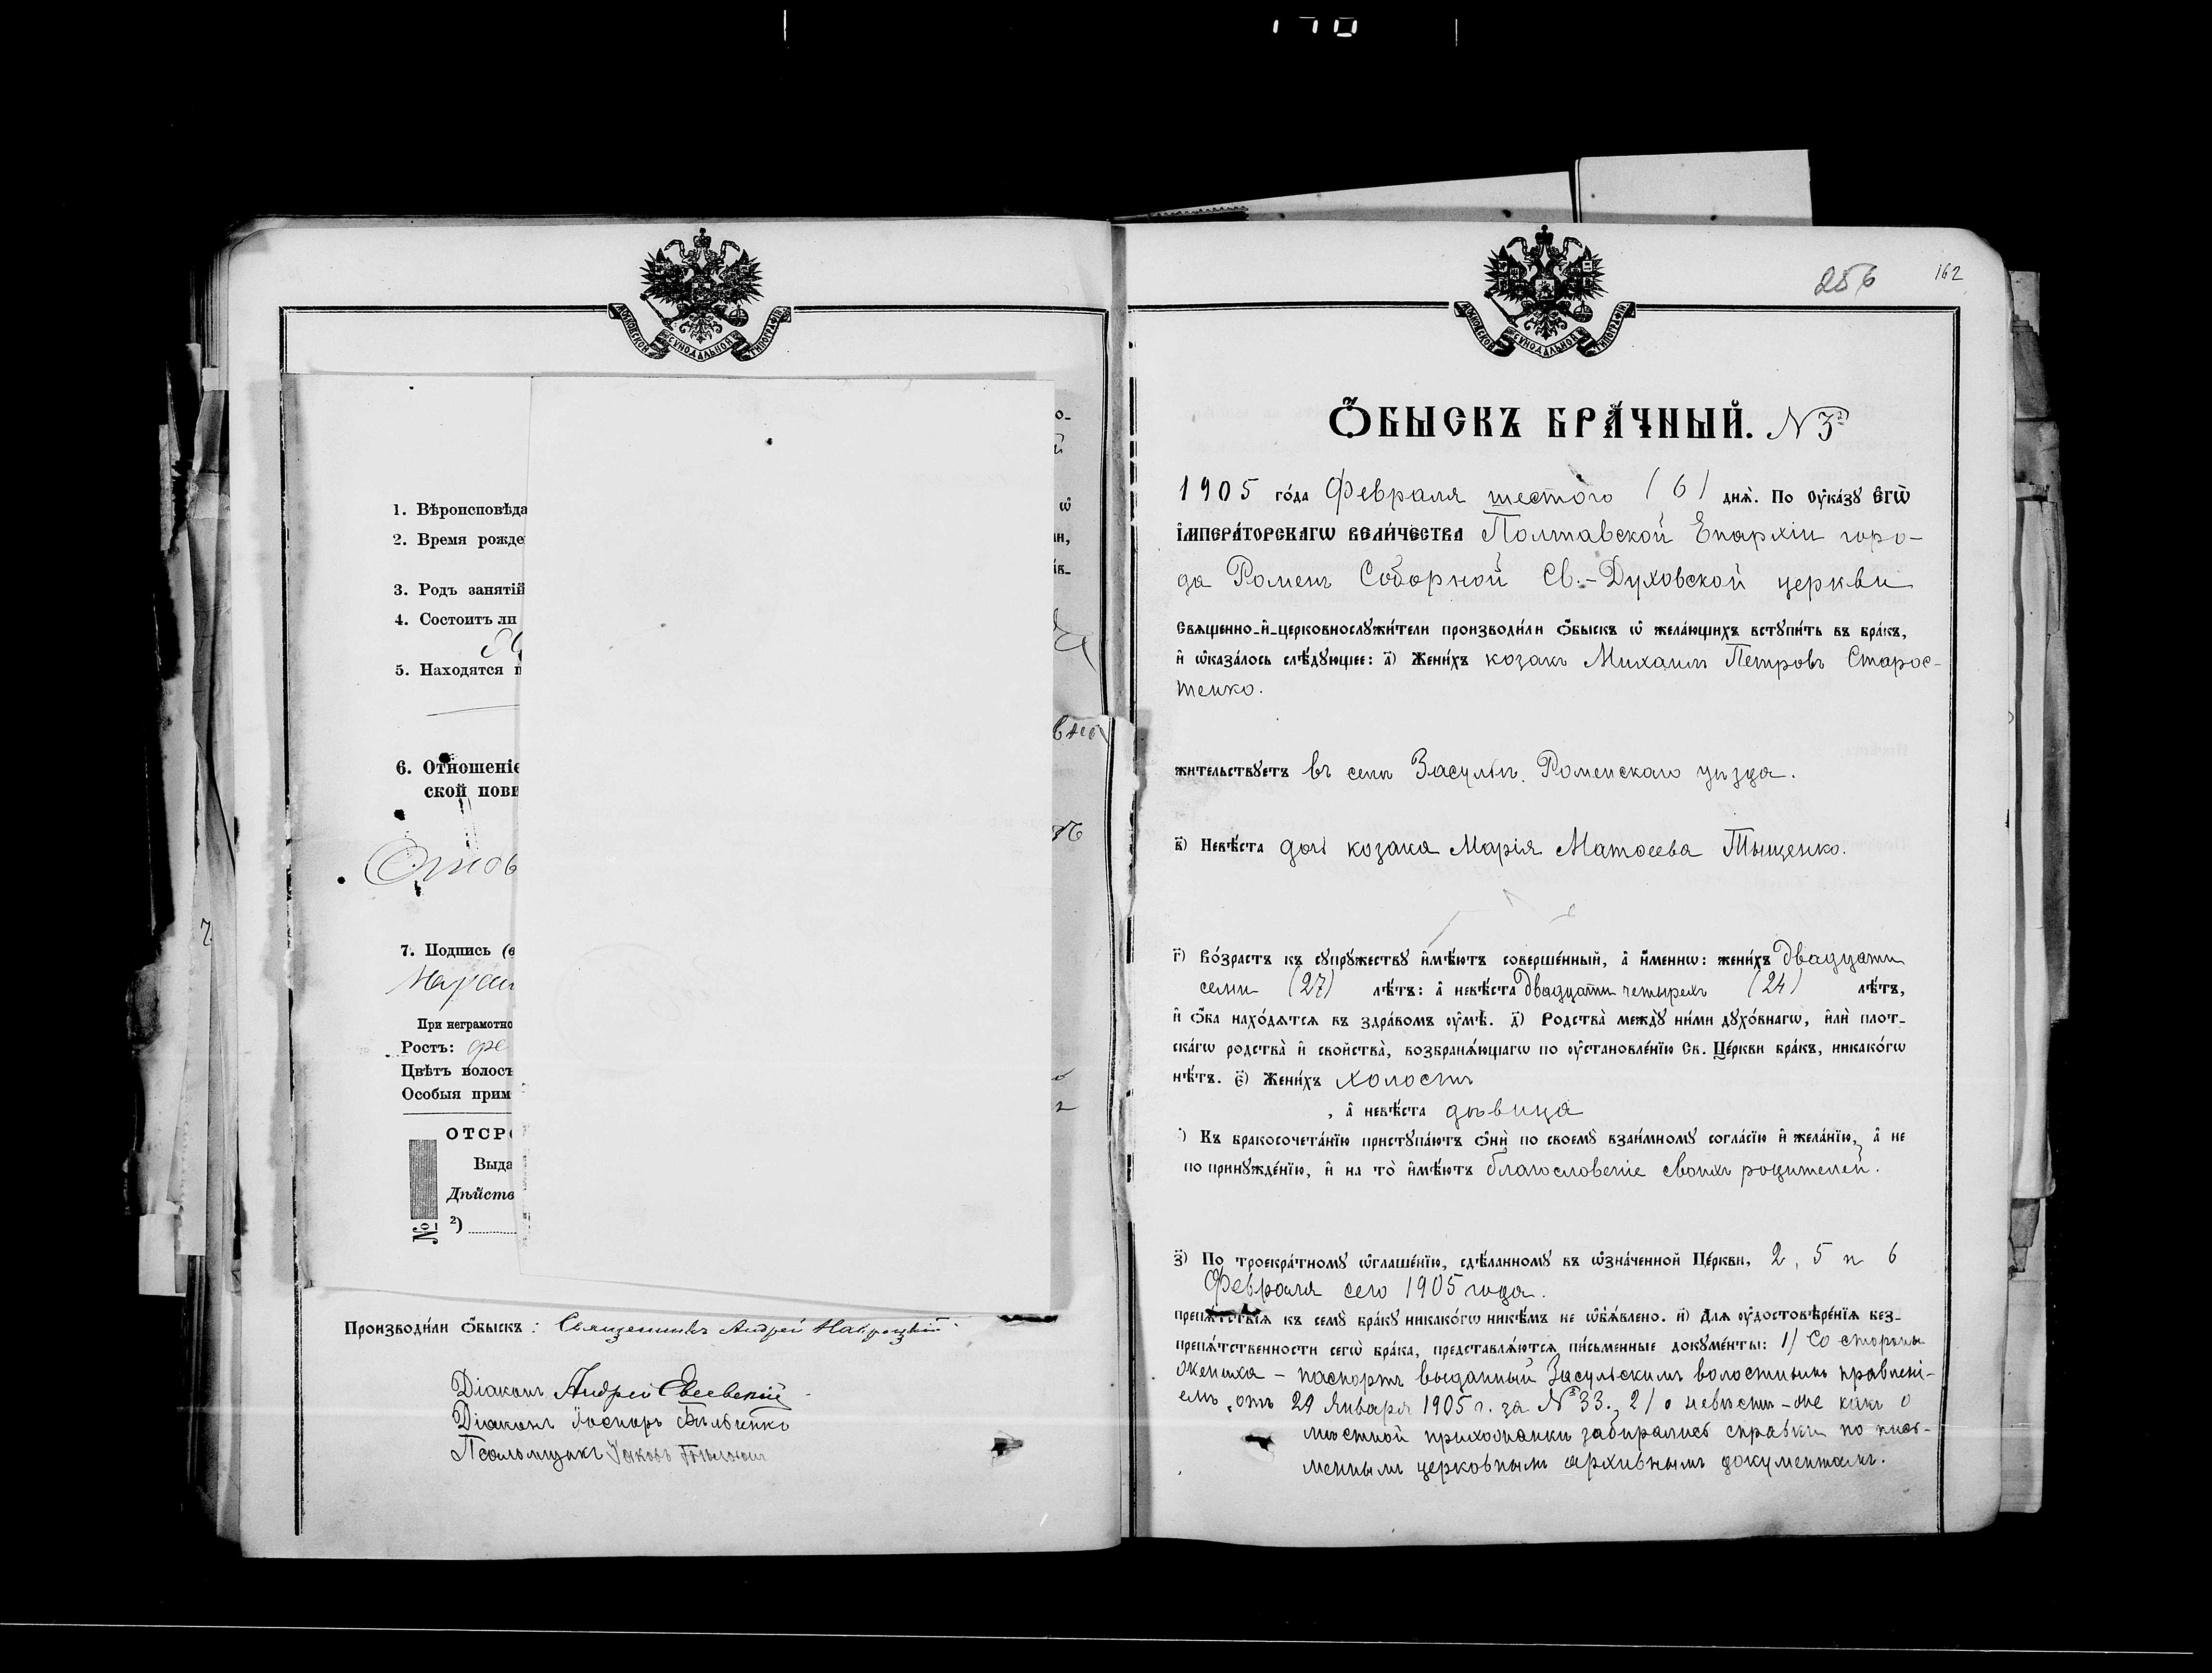 170
МОСКОВСКОЙ СѴНОДАЛЬНОЙ ТИПОГРАФІИ
1. Вѣроисповѣда
2. Время рожде
3. Родъ занятій
4. Состоитъ ли
5. Находятся п
6. Отношеніе
ской пови
7. Подпись (е
При неграмотно
Ростъ:
Цвѣтъ волосъ
Особыя прим
ОТСР
Выда
Дѣйств
№ 2)
Производи́ли ѻ҆́быскъ: Священникъ Андрей Навроцкій
Діаконъ Андрей Евсевскій
Діаконъ
Псаломщикъ Іаковъ
256 162
МОСКОВСКОЙ СѴНОДАЛЬНОЙ ТИПОГРАФІИ
Ѻ҆́БЫСКЪ БРА́ЧНЫЙ. N 3
1905 го́да Февраля шестого (6) днѧ̀. По ᲂу҆ка́зꙋ Є҆гѡ̀
І҆мпера́торскагѡ Вели́чества Полтавской Епархіи горо-
да Роменъ Соборной Св.-Духовской церкви
Свѧщенно-и҆-церковнослꙋжи́тели производи́ли ѻ҆́быскъ ѡ҆ жела́ющихъ встꙋпи́ть въ бра́къ,
и҆ ѡ҆каза́лось слѣ́дꙋющее: а҃) Жени́хъ козакъ Михаилъ Петровъ Старос-
тенко.
жительствꙋетъ въ селѣ Засульѣ, Роменскаго уѣзда.
в҃) Невѣ́ста дочь козака Марія Матѳеева Тыщенко.
г҃) Во́зрастъ къ сꙋпрꙋ́жествꙋ и҆мѣ́ютъ соверше́нный, а҆ и҆́меннѡ: жени́хъ двадцати
семи (27) лѣ́тъ: а҆ невѣ́ста двадцати четырехъ (24) лѣ́тъ,
и҆ ѻ҆́ба нахо́дѧтсѧ въ здра́вомъ ᲂу҆мѣ̀. д҃) Родства̀ междꙋ̀ ни́ми дꙋхо́внагѡ, и҆лѝ плот-
ска́гѡ родства̀ и҆ свойства̀, возбранѧ́ющагѡ по ᲂу҆становле́нїю Св. Це́ркви бра́къ, никако́гѡ
нѣ́тъ. є҃) Жени́хъ холостъ
, а҆ невѣ́ста дѣвица
) Къ бракосочета́нїю пристꙋпа́ютъ ѻ҆нѝ по своемꙋ̀ взаи́мномꙋ согла́сїю и҆ жела́нїю, а҆ не
по принꙋжде́нїю, и҆ на то̀ и҆мѣ́ютъ благословеніе своихъ родителей.
з҃) По троекра́тномꙋ ѡ҆глаше́нїю, сдѣ́ланномꙋ въ ѡ҆зна́ченной Це́ркви, 2, 5 и 6
Февраля сего 1905 года.
препѧ́тствїѧ къ семꙋ̀ бра́кꙋ никако́гѡ никѣ́мъ не ѡ҆бѧ́влено. и҃) Длѧ ᲂу҆достовѣре́нїѧ без-
препѧ́тственности сегѡ̀ бра́ка, представлѧ́ютсѧ пи́сьменные докꙋме́нты: 1) Со стороны
жениха – паспортъ выданный Засульскимъ волостнымъ правлені-
емъ, отъ 29 Января 1905 г. за № 33. 2) о невѣстѣ-же какъ о
мѣстной прихожанки забирались справки по пись-
меннымъ церковнымъ архивнымъ документамъ.